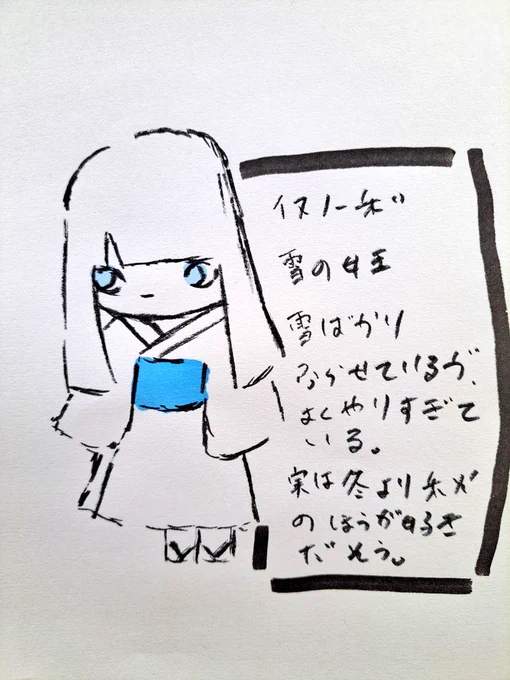 雪の女王
雪ばかり
ふらせているが、
よくやりすぎて
いる。
実は冬より
のほうが好き
だそう。